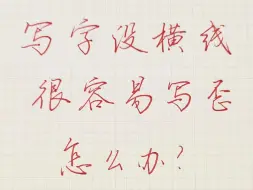 写字没横线
很容易写歪
怎么办?